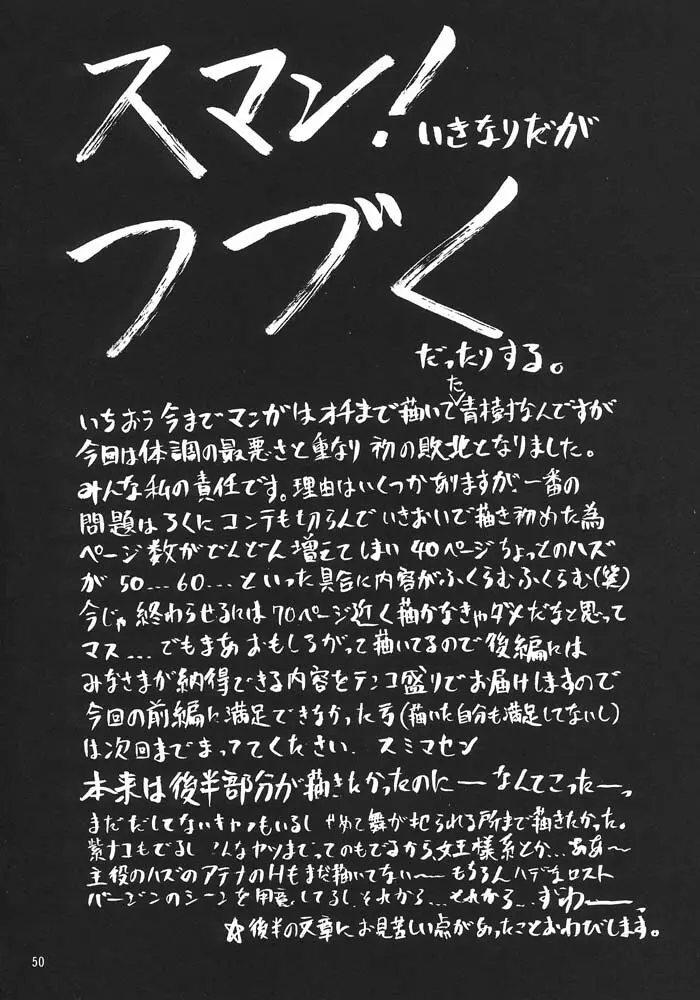 スマン！いきなりだが
つづく
だったりする。
いちおう今までマンガはオチまで描いてた青樹村なんですが
今回は体調の最悪さと重なり初の敗北となりました。
みんな私の責任です。理由はいくつかありますが一番の
問題はろくにコンテも切らんでいきおいで描き初めた為
ページ数がどんどん増えてしまい40ページちょっとのハズ
が50…60…といった具合に内容がふくらむふくらむ(笑)
今じゃ終わらせるには70ページ近く描かなきゃダメだなと思って
マス…でもまあおもしろがって描いてるので後編には
みなさまが納得できる内容をテンコ盛りでお届けしますので
今回の前編に満足できなかった方(描いた自分も満足してないし)
は次回までまっててください。スミマセン
本来は後半部分が描きたかったのにーなんてこったーっ
まだだしてないキャラもいるし やめて舞が犯られる所まで描きたかった。
紫ナコもでるし こんなヤツまでってのもでるから女王様系とか…ああ〜
主役のハズのアテナのHもまだ描いてない〜もちろんハデなロスト
バージンのシーンを用意してるしそれから…それから…ずわーーっ
☆後半の文章にお見苦しい点があったことおわびします。
50